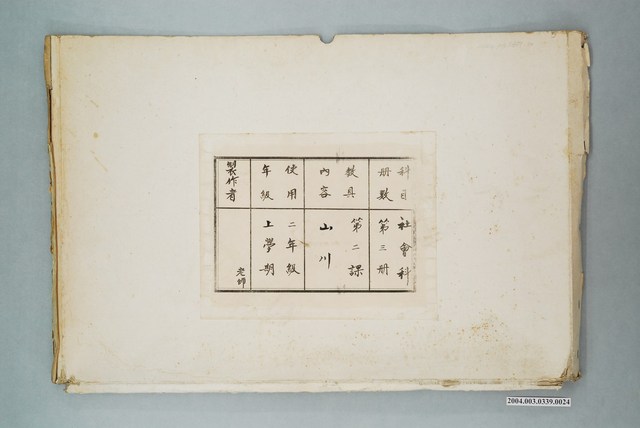 科目
社會科
冊數
第三冊
教具
第二課
內容
山川
使用
二年級
年級
上學期
製作者
老師
2004.003.0339.0024